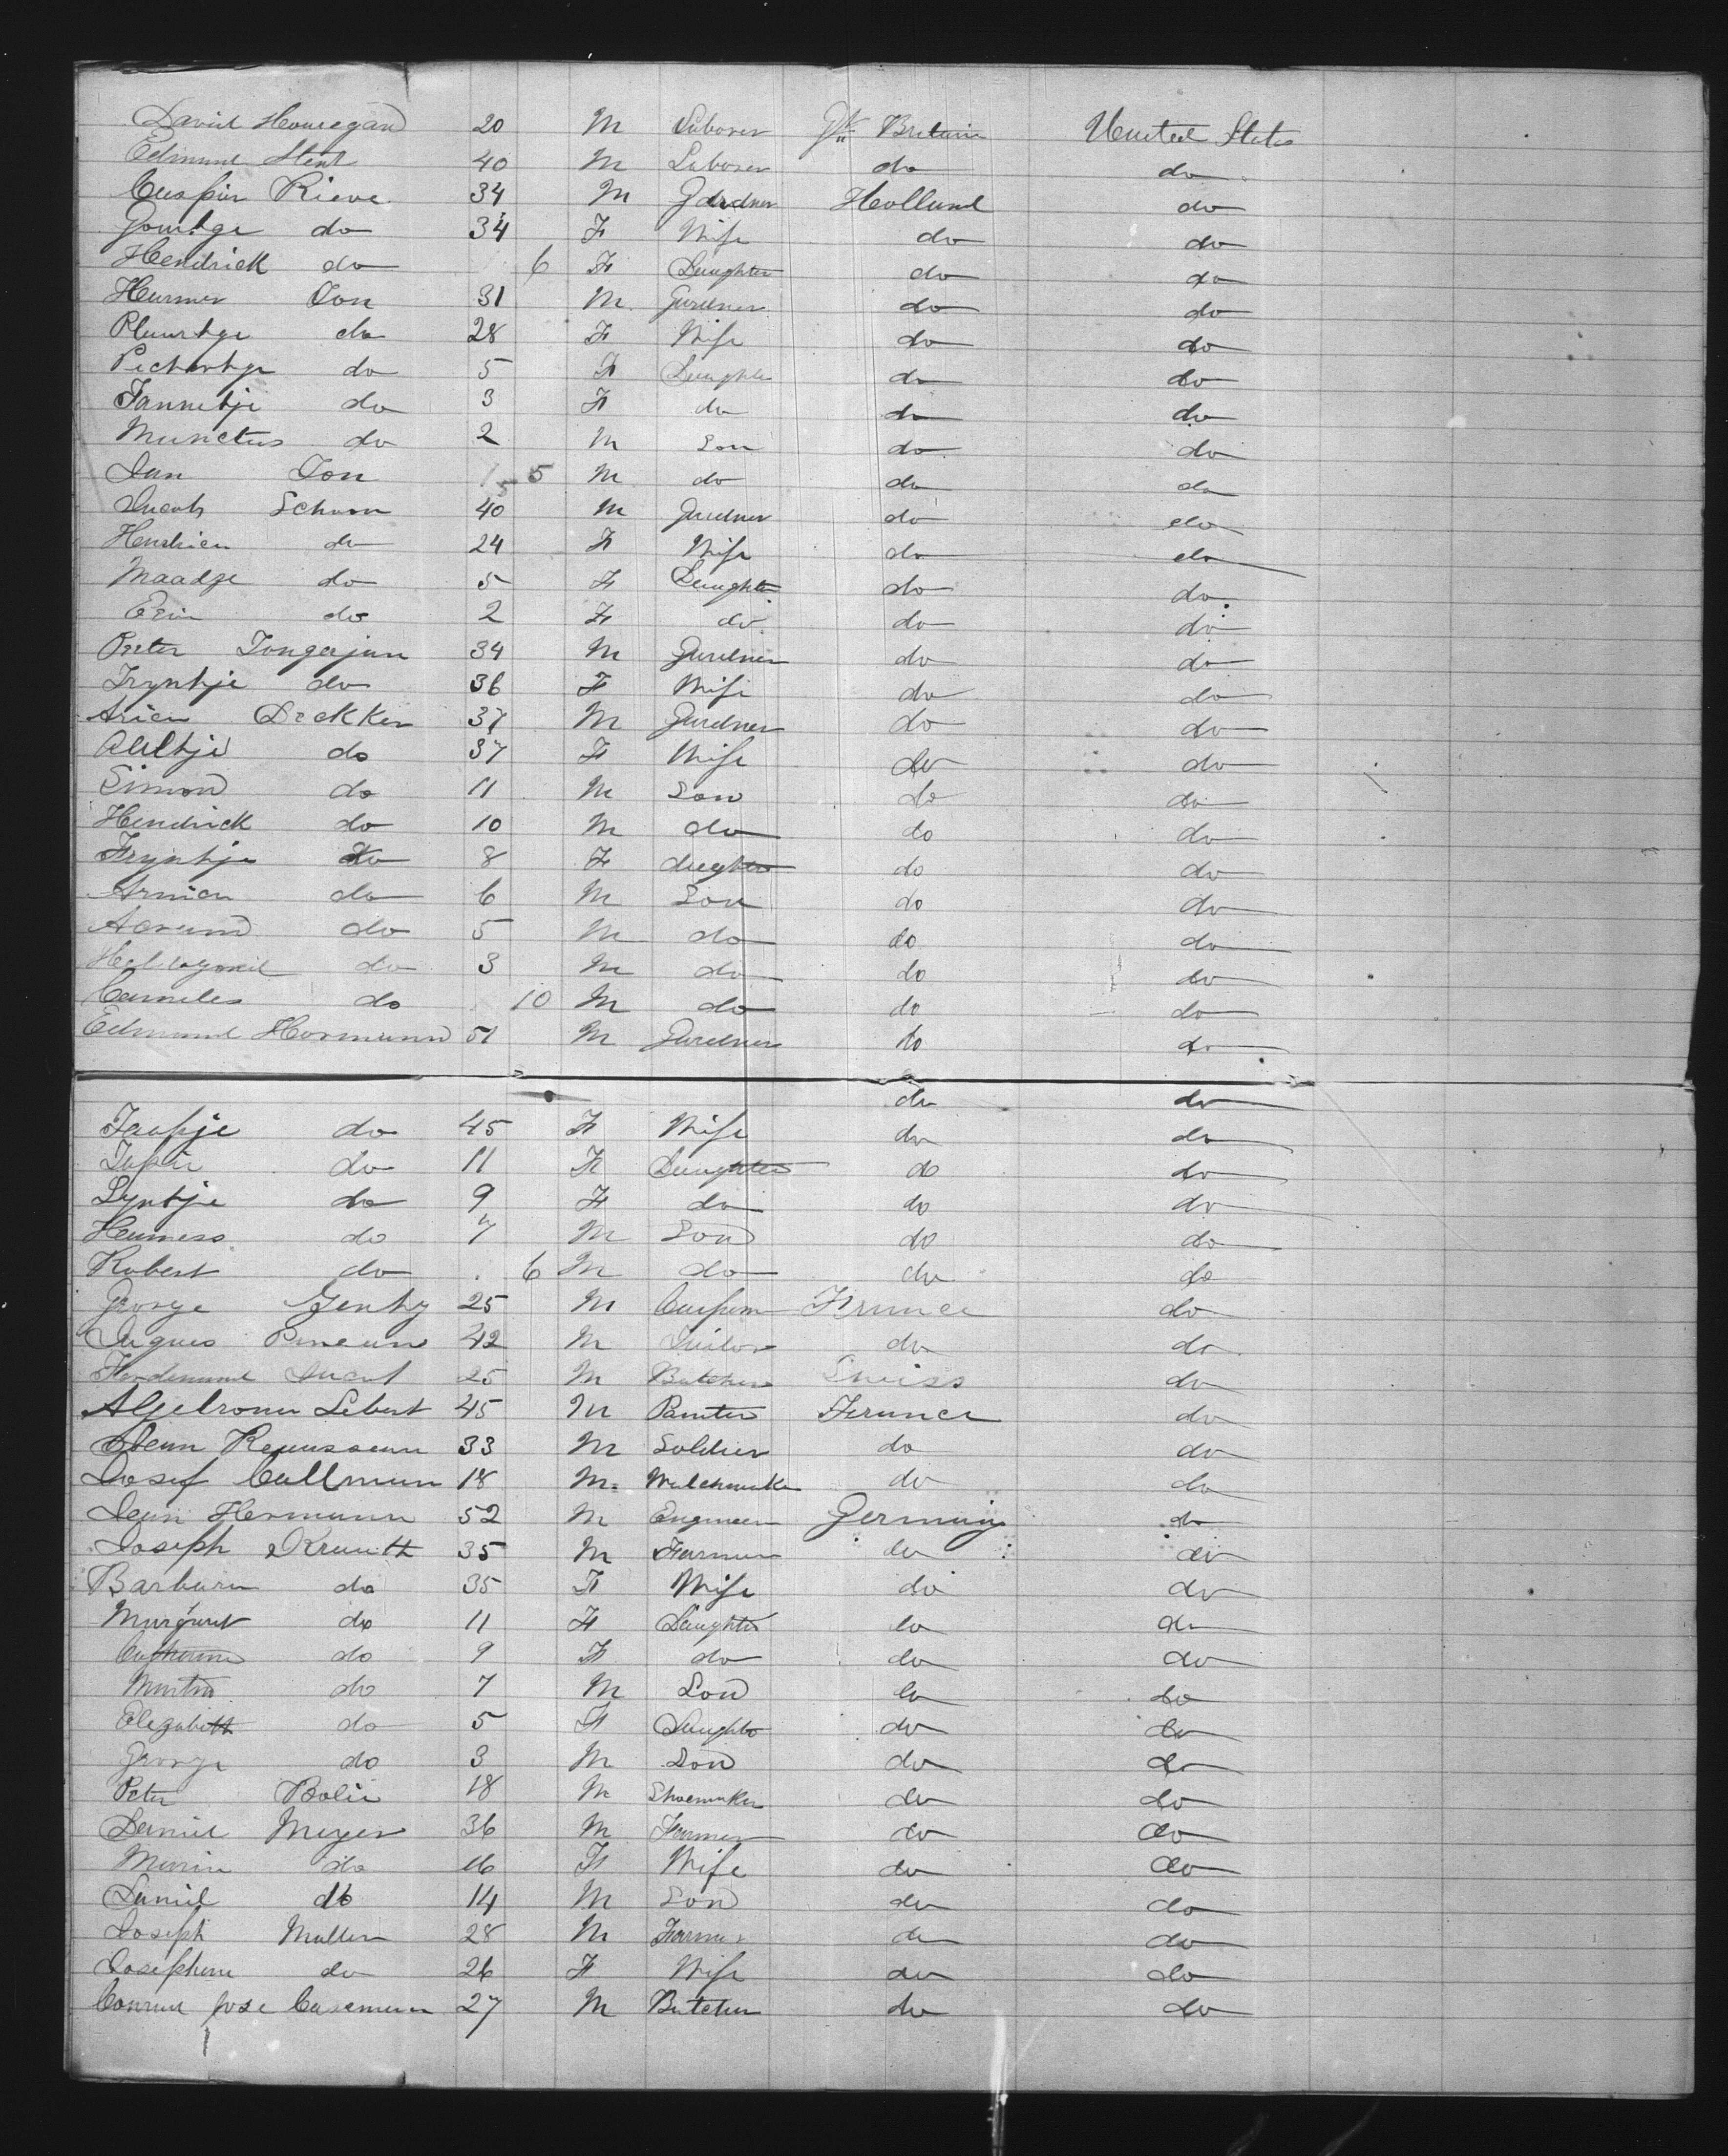 David Houregand 20 M Laborer Gt Britain United States
Edmund Stent 40 M Laborer do do
Caspar Rieve 34 M Gardner Holland do
Gourtge do 34 F Wife do do
Hendrick do 6 F Daughter do do
Harmer Ton 31 M Gardner do do
Pluurtge do 28 F Wife do do
do 5 F Daughter do do
Jannetje do 3 F do do do
Munctus do 2 M Son do do
Jan Ton 5 M do do do
Jacob Schoon 40 M Gardner do do
Hendrien do 24 F Wife do do
Maadge do 5 F Daughter do do
do 2 F do do do
Peter Jongerjan 34 M Gardner do do
Tryntje do 36 F Wife do do
Arien Dekker 37 M Gardner do do
Aaltje do 37 F Wife do do
Simon do 11 M Son do do
Hendrick do 10 M do do do
Tryntje do 8 F daughter do do
Armien do 6 M Son do do
do 5 M do do do
do 3 M do do do
Carneles do 10 M do do do
Edmund Hormann 51 M Gardner do do
do do
Jaapje do 45 F Wife do do
do 11 F Daughter do do
Lyntje do 9 F do do do
Harmess do 7 M Son do do
Robert do 6 M do do do
George Genty 25 M Carpen France do
Jaques 42 M Tailor do do
Ferdinand 25 M Butcher Swiss do
Lebert 45 M Painter France do
Jean 33 M Soldier do do
Josef Callman 18 M Watchmaker do do
Jean Hermann 52 M Engineer Germany do
Joseph Krauth 35 M Farmer do do
Barbara do 35 F Wife do do
Margaret do 11 F Daughter do do
Catharina do 9 F do do do
Martin do 7 M Son do do
Elizabeth do 5 F Daughter do do
George do 3 M Son do do
Peter Bolie 18 M Shoemaker do do
Daniel Meyer 36 M Farmer do do
Maria do F Wife do do
Daniel do 14 M Son do do
Joseph Muller 28 M Farmer do do
Josephine do 26 F Wife do do
Conrad Jose Casemann 27 M Butcher do do